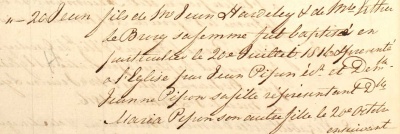 "— 20 Jean fils de Mr Jean Hardeley & de Mse Esther
de Bury sa femme fut baptisé en
particulier le 20e Juillet 1816 & presenté
à l'Eglise par Jean Pipon écr. et Delle
Jeanne Pipon sa fille représentant Dlle
Maria Pipon son autre fille le 20e Octobre
ensuivant